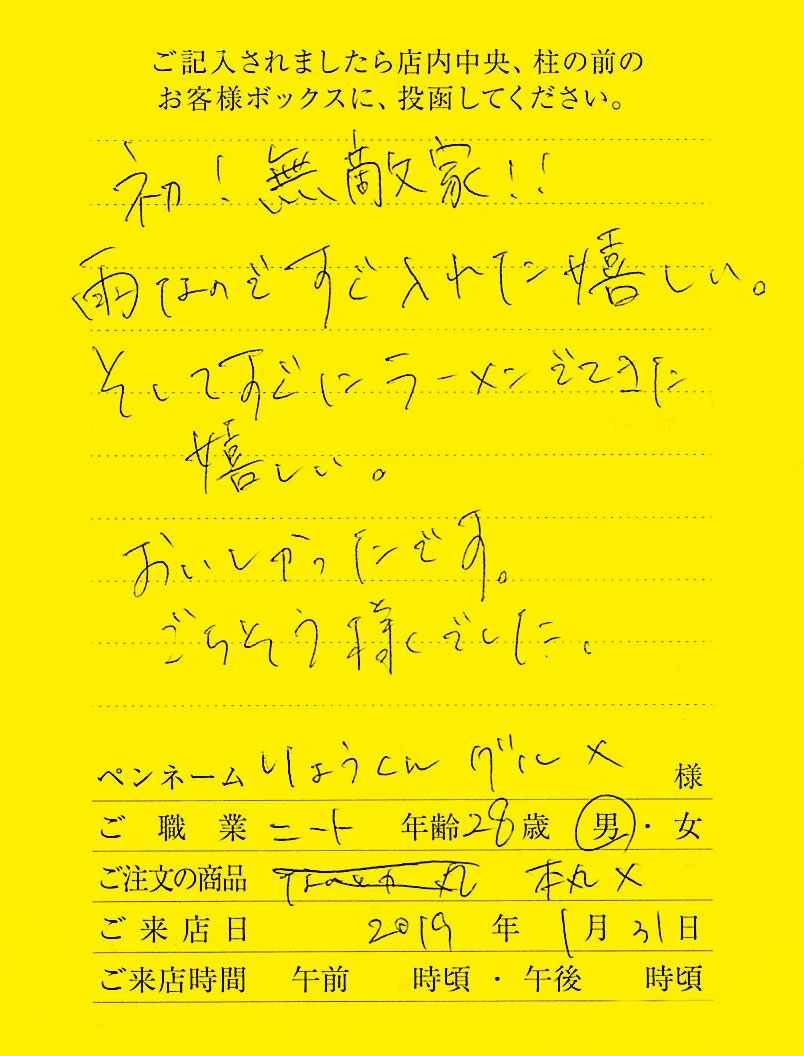 ご記入されましたら店内中央、柱の前の
お客様ボックスに、投函してください。
初!無敵家!!
雨なのですぐ入れた嬉しい。
そしてすぐにラーメンでてきた
嬉しい。
おいしかったです。
ごちそう様でした。
ペンネーム りょうくん グルメ 様
ご職業 ニート 年齢 28 歳 男・女
ご注文の商品 本丸メ
ご来店日 2019 年 1月 31日
ご来店時間 午前 時頃・午後 時頃